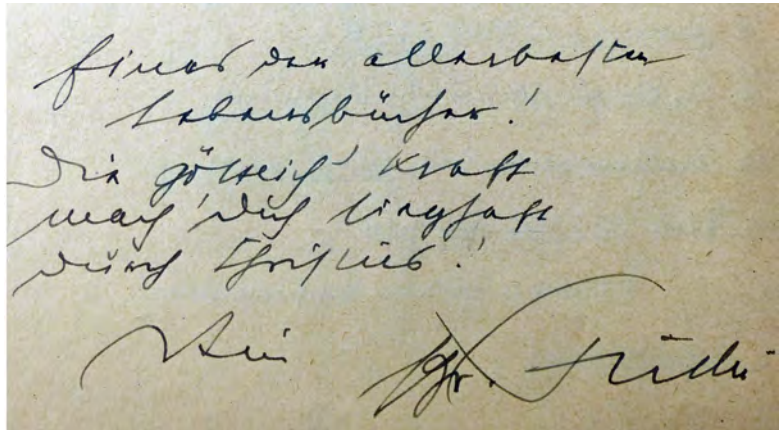 Eines der allerbesten
Lebensbücher!
Die göttlich' Kraft
mach' Dich sieghaft
durch Christus!
Dein